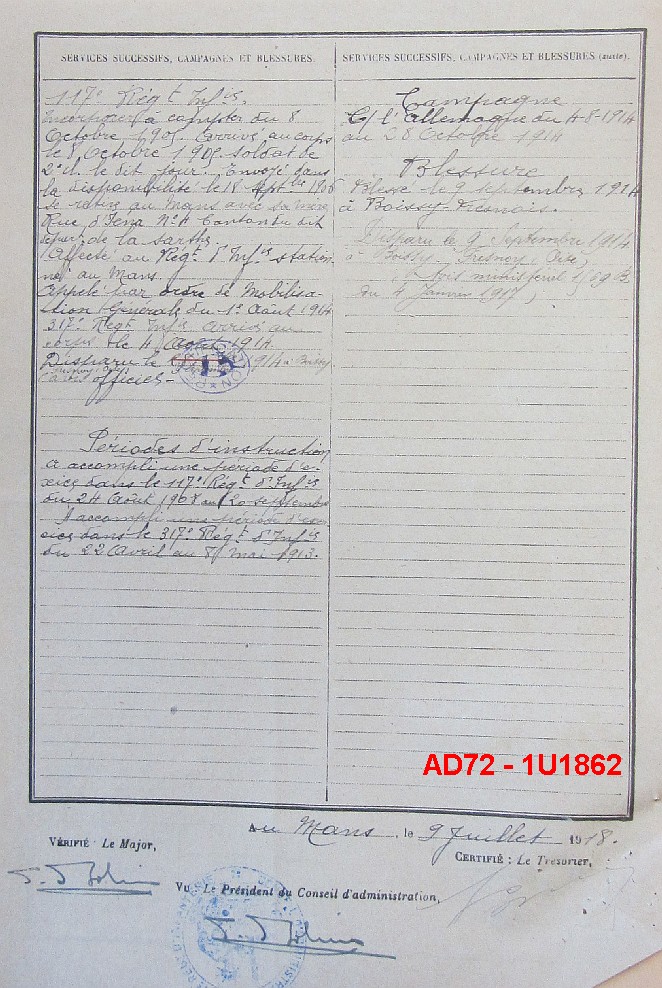 SERVICES SUCCESSIFS, CAMPAGNES ET BLESSURES.
117e Régt Infie.
Incorporé à compter du 8
Octobre 1905. Arrivé au corps
le 8 Octobre 1905. Soldat de
2e cl. le dit jour. Envoyé dans
la disponibilité le 18 Septbre 1906
Se retire au Mans avec sa mère
Rue d'Iéna No 4 Canton du dit
départ de la Sarthe.
Affecté au Régt d'Infie station-
né au Mans.
Appelé par ordre de Mobilisa-
tion Générale du 1er Août 1914
317e Régt Infie arrivé au
corps le 4 Août 1914.
Disparu le 1914 à Boissy
officiel-
Périodes d'instruction
A accompli une période d'ex-
cice dans le 117e Régt d'Infie
du 24 Août 1908 au 20 septembre
A accompli une période d'ex-
cice dans le 317e Régt d'Infie
du 22 Avril au 8 Mai 1913.
SERVICES SUCCESSIFS, CAMPAGNES ET BLESSURES (suite).
Campagne
C/ l'Allemagne du 4-8-1914
au 28 Octobre 1914
Blessure
Blessé le 9 septembre 1914
à Boissy-Fresnois.
Disparu le 9 Septembre 1914
à Boissy - Fresnoy (Oise)
Avis ministériel
du 4 Janvier 1917
AD72 - 1U1862
Au Mans, le 9 Juillet 1918.
VÉRIFIÉ : Le Major,
CERTIFIÉ : Le Trésorier,
VU : Le Président du Conseil d'administration,